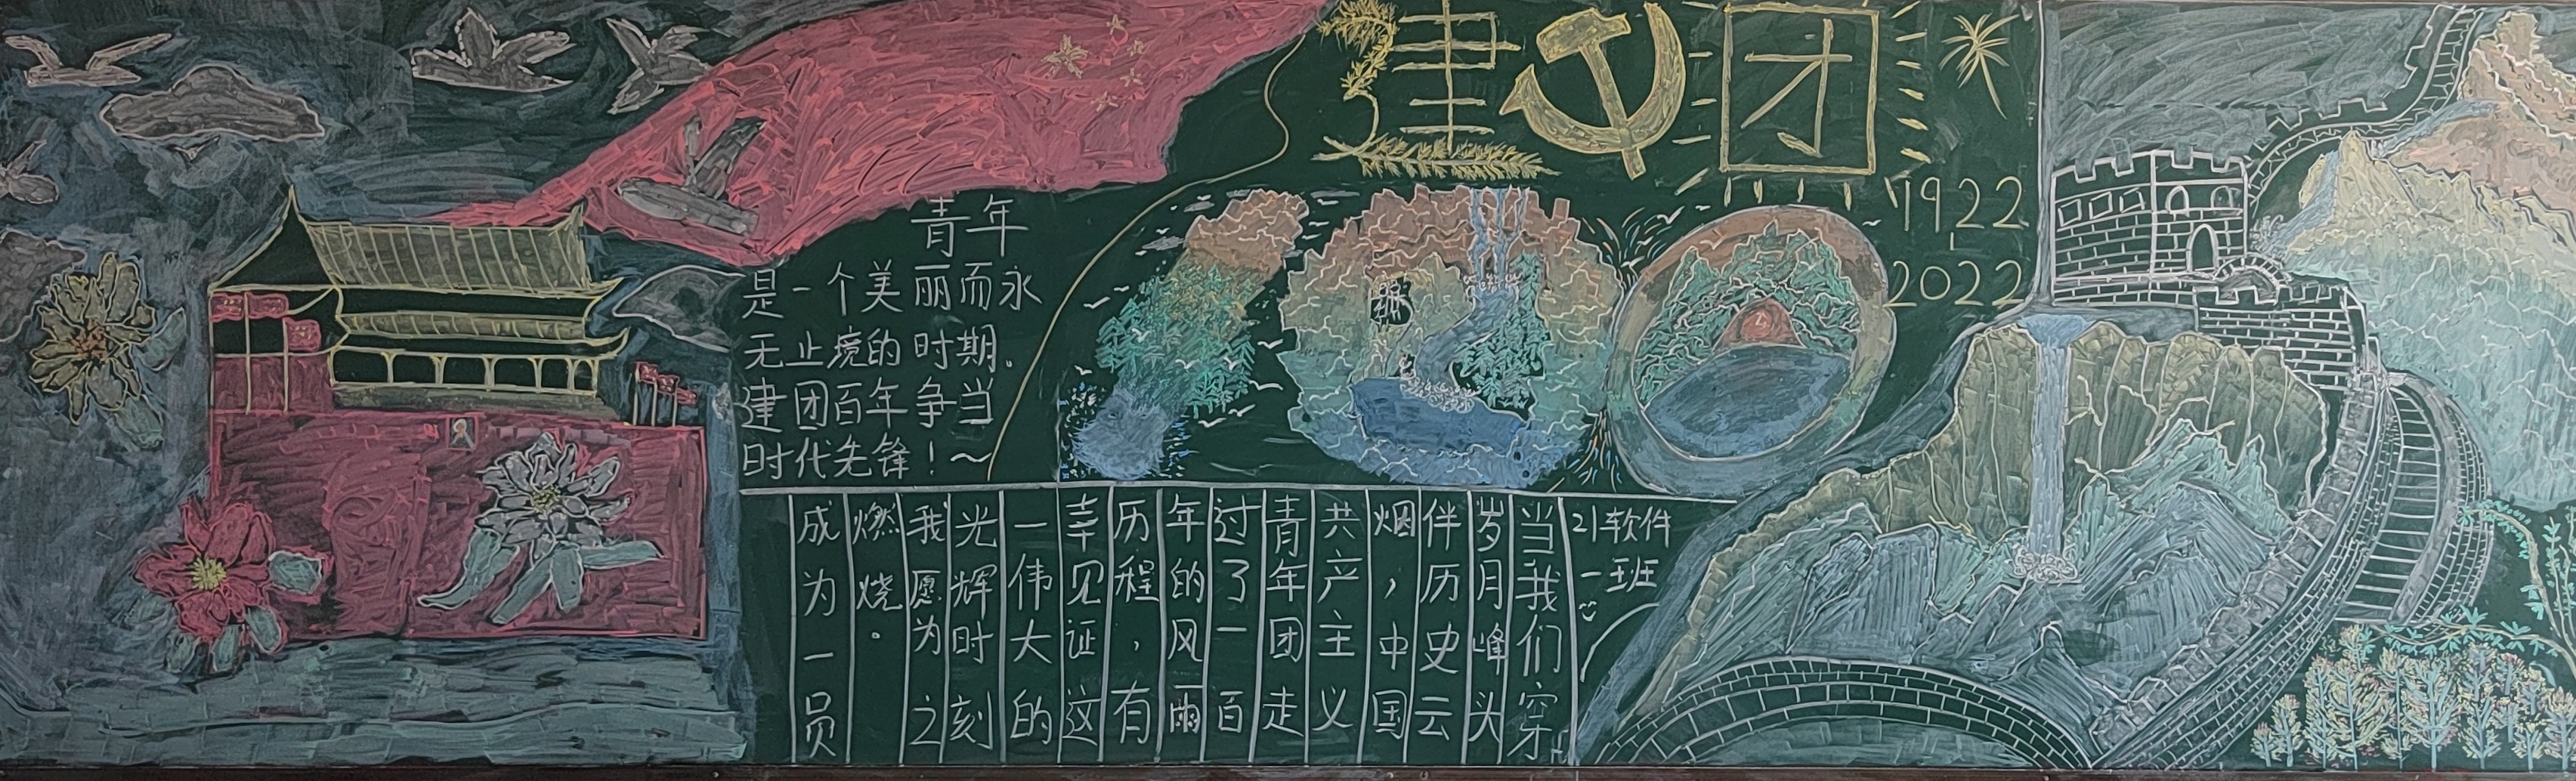 建团
1922
-
2022
青年
是一个美丽而永
无止境的时期。
建团百年争当
时代先锋！～
21软件
一班
当我们穿
岁月峰头
伴历史云
烟，中国
共产主义
青年团走
过了一百
年的风雨
历程，有
幸见证这
一伟大的
光辉时刻
我愿为之
燃烧。
成为一员